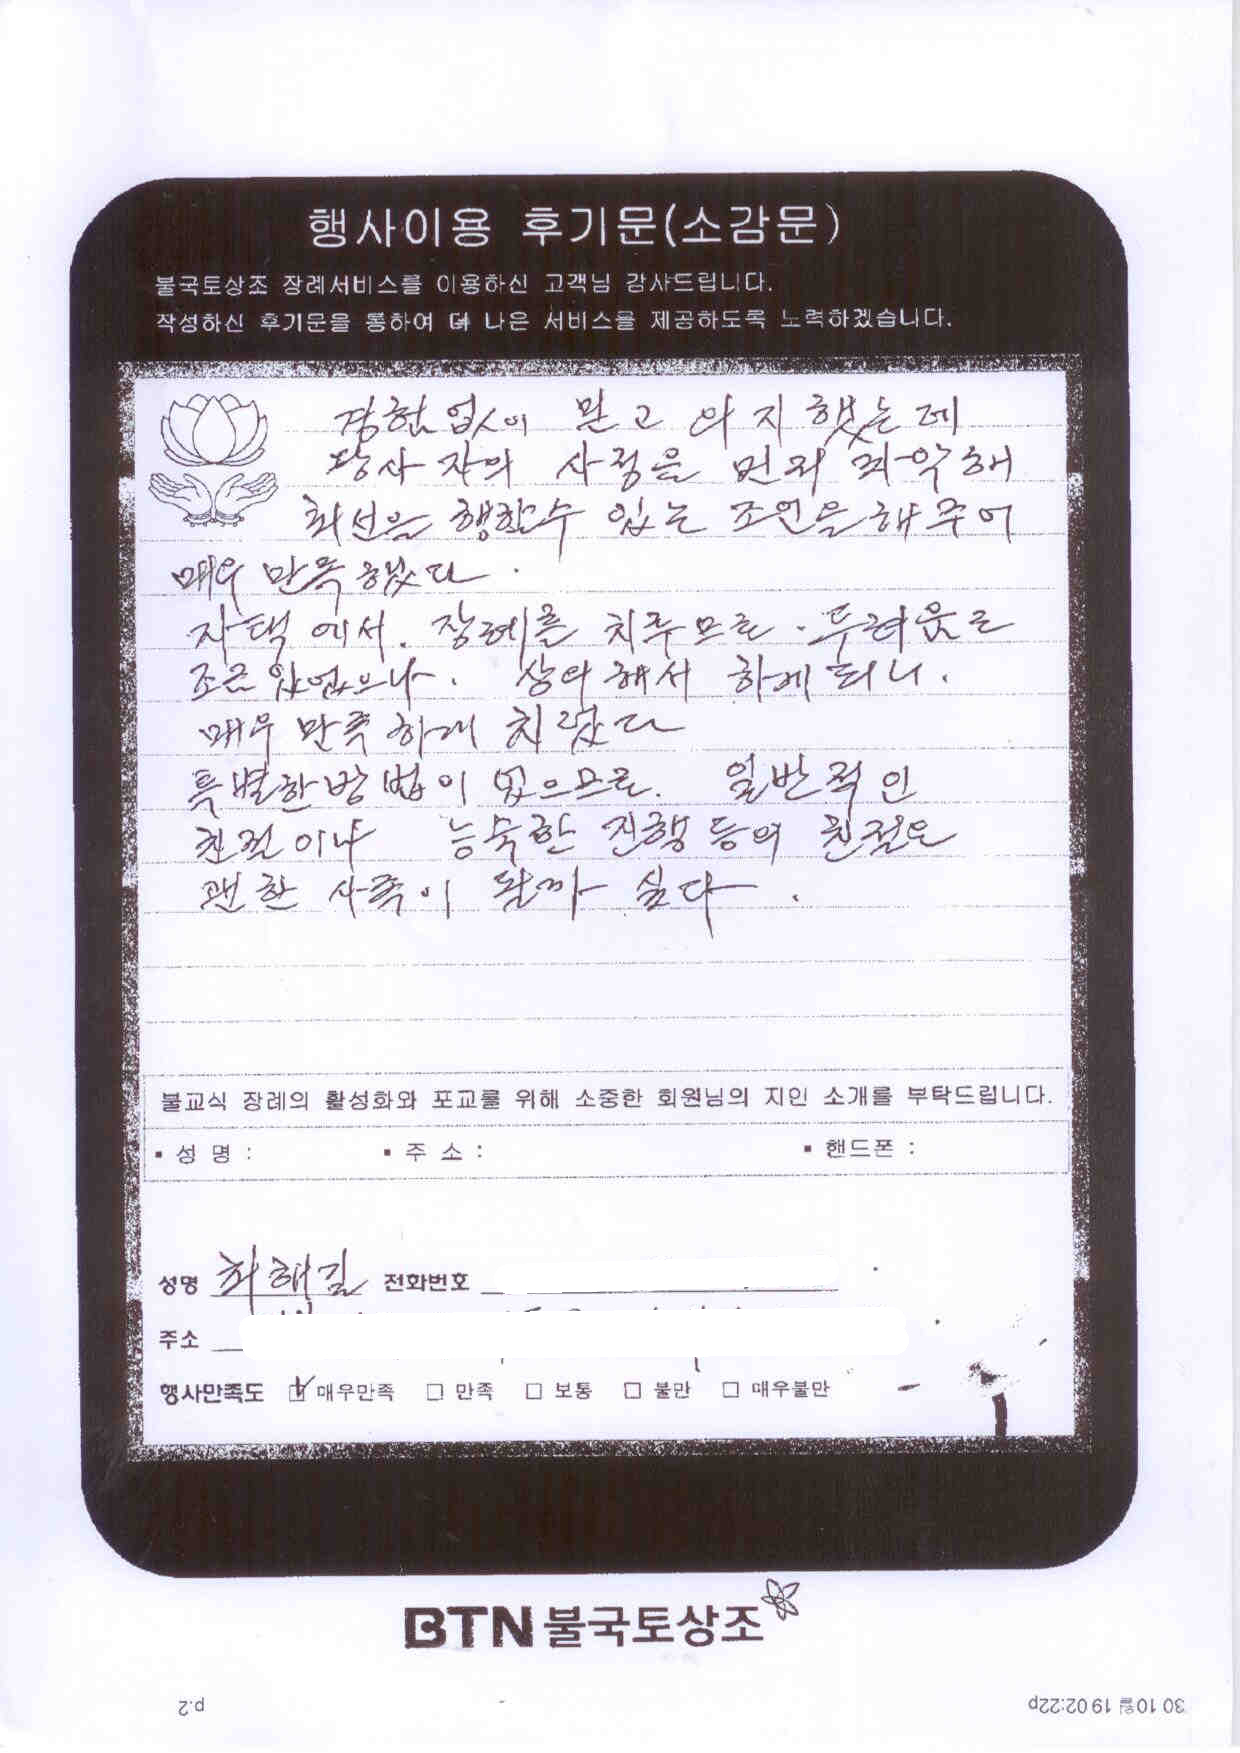 행사이용 후기문(소감문)
불국토상조 장례서비스를 이용하신 고객님 감사드립니다.
작성하신 후기문을 통하여 더 나은 서비스를 제공하도록 노력하겠습니다.
경험 없이 믿고 의지했는데
당사자의 사정을 먼저 파악해
최선을 행할수 있는 조언을 해주어
매우 만족했다.
자택에서. 장례를 치루므로. 두려움도
조금 있었으나. 상의해서 하게되니.
매우 만족하게 치렀다
특별한 방법이 없으므로. 일반적인
친절이나 능숙한 진행 등의 친절도
괜한 사족이 될까 싶다.
불교식 장례의 활성화와 포교를 위해 소중한 회원님의 지인 소개를 부탁드립니다.
▪ 성 명 : ▪ 주 소 : ▪ 핸드폰 :
성명 최해길 전화번호
주소
행사만족도 ☑ 매우만족 □ 만족 □ 보통 □ 불만 □ 매우불만
BTN불국토상조
p.2
30 10 10월 19 02:22p